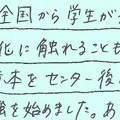 全国から学生が
化に触れることも
本をセンター後に
を始めました。あ